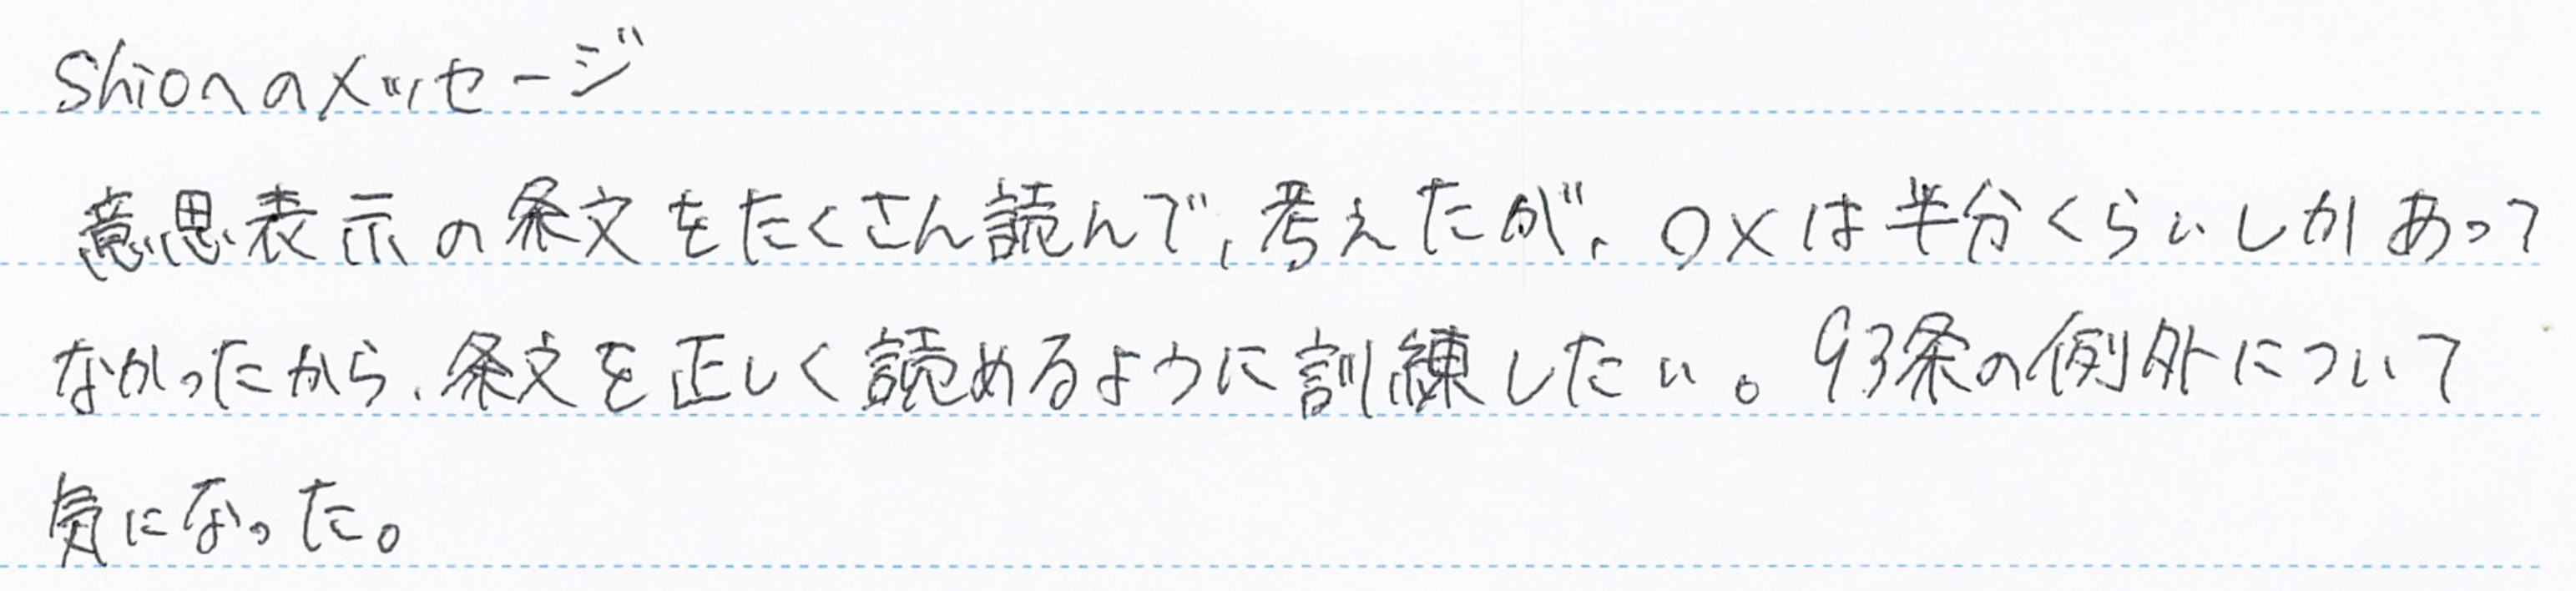 Shioへのメッセージ
意思表示の条文をたくさん読んで、考えたが、○×は半分くらいしかあって
なかったから、条文を正しく読めるように訓練したい。93条の例外について
気になった。